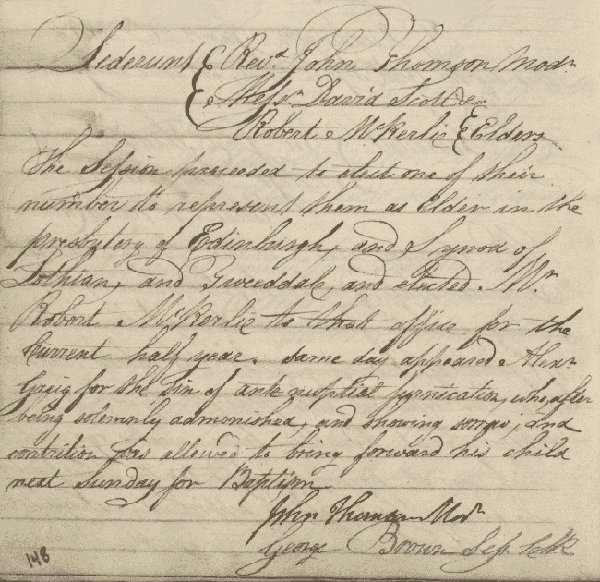 Sederunt { Revd. John Thomson Modr.
Messrs. David Scott &
Robert McKerlie } Elders
The Session proceeded to elect one of their
number to represent them as Elder in the
presbytery of Edinburgh, and Synod of
Lothian, and Tweeddale, and elected Mr.
Robert McKerlie to that office for the
Current half year. same day appeared Alexr.
Greig for the sin of antenuptial fornication, who, after
being solemnly admonished, and showing sorrow, and
contrition was allowed to bring forward his child
next Sunday for Baptism
John Thomson Modr.
George Brown Sess. Clk
148